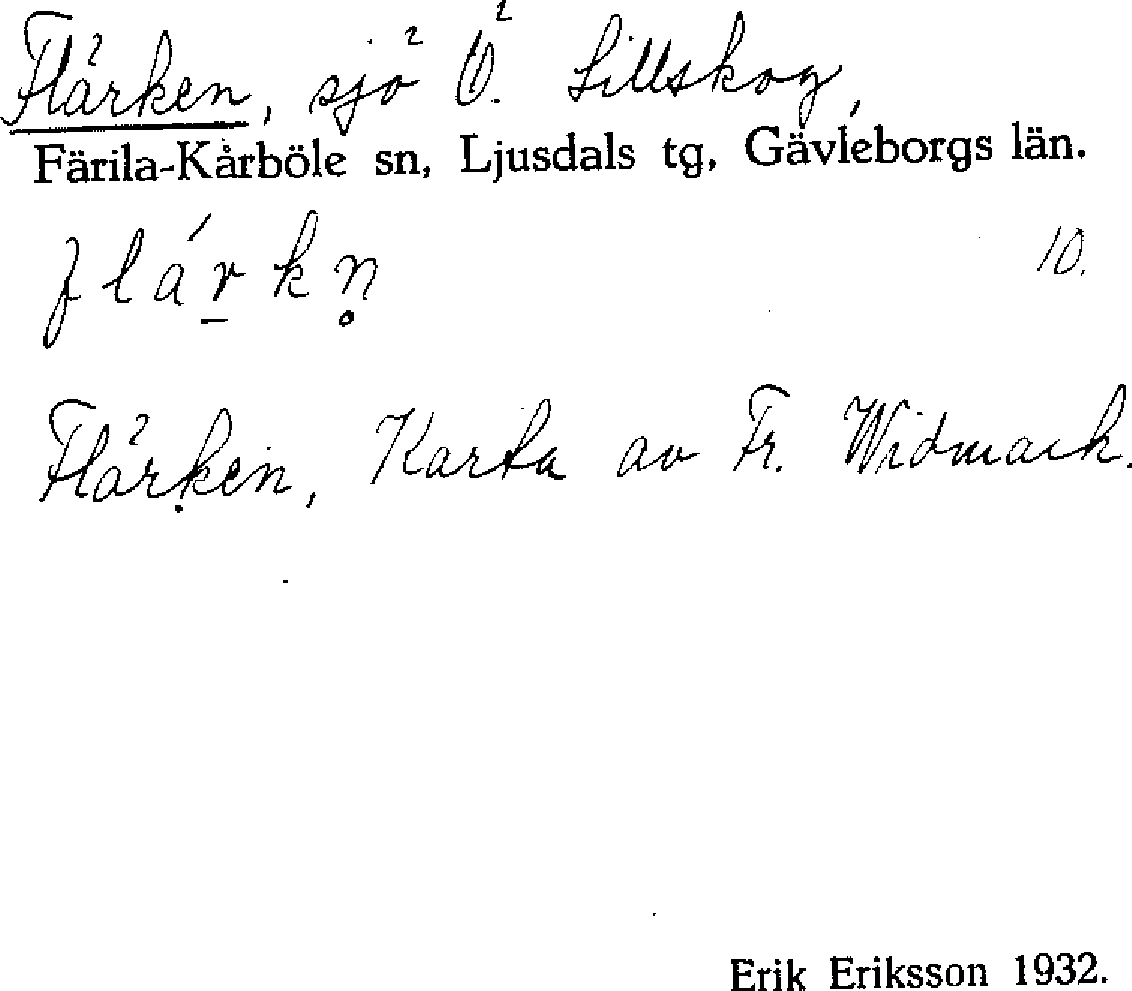 Flärken, sjö Ö. Lillskog,
Färila-Kårböle sn, Ljusdals tg, Gävleborgs län.
flárkn̥ 10.
Flärken, Karta av Fr. Widmark.
Erik Eriksson 1932.